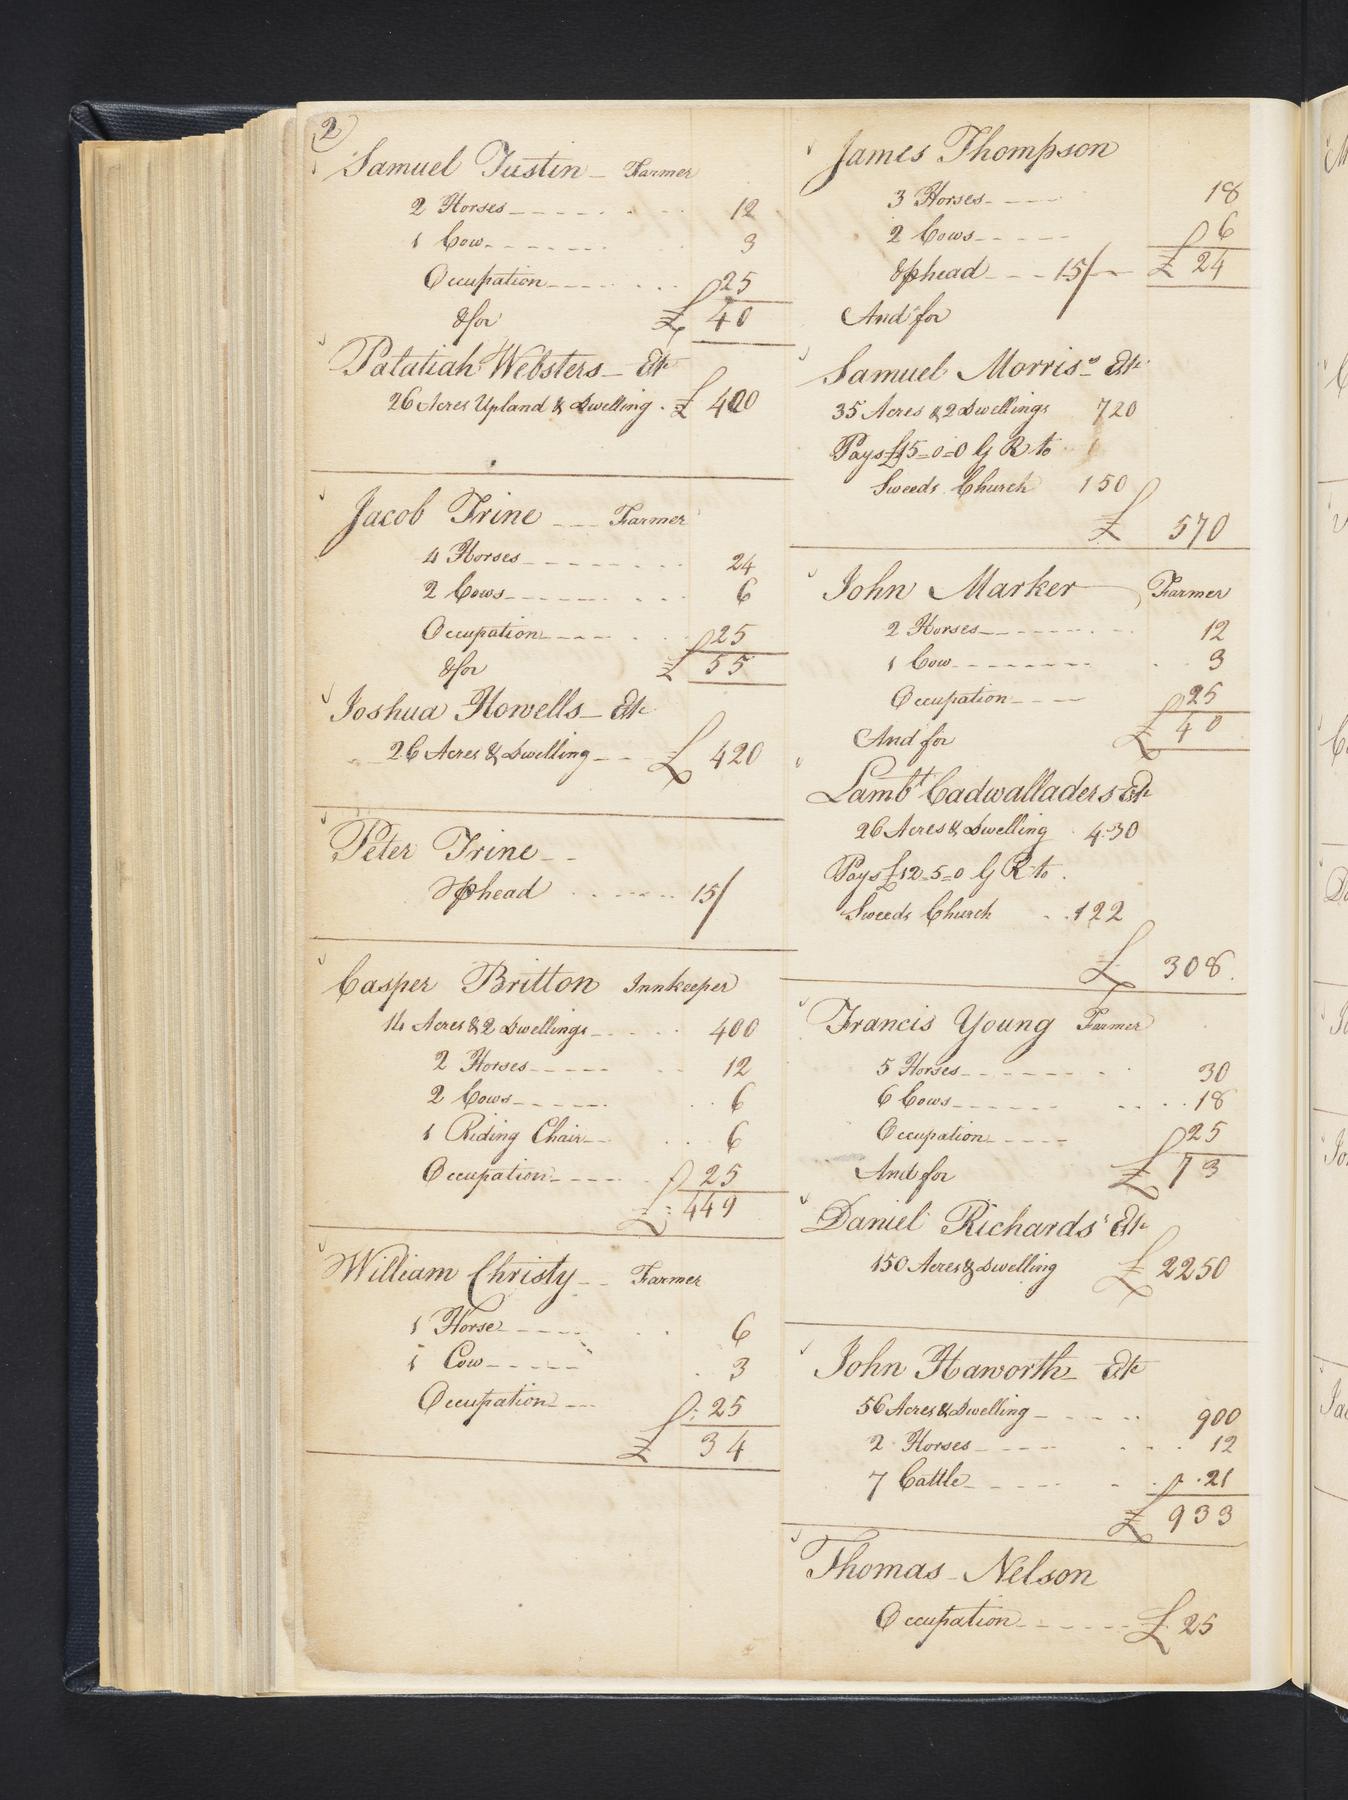 2
Samuel Justin - Farmer
2 Horses 12
1 Cow 3
Occupation 25
&for £ 40
Palatiah Websters - Est
26 Acres Upland & Dwelling £ 420
Jacob Trine Farmer
4 Horses 24
2 Cows 6
Occupation 25
&for £ 55
Joshua Howells - Est
26 Acres & Dwelling £ 420
Peter Trine
⅌head 15/
Casper Britton Innkeeper
14 Acres & 2 Dwellings 400
2 Horses 12
2 Cows 6
1 Riding Chair 6
Occupation 25
£ 449
William Christy Farmer
1 Horse 6
1 Cow 3
Occupation 25
£ 34
James Thompson
3 Horses 18
2 Cows 6
⅌head 15/ £ 24
And for
Samuel Morris's Est
35 Acres & 2 Dwellings 720
Pays £15=0=0 G R to
Sweeds Church 150
£ 570
John Marker Farmer
2 Horses 12
1 Cow 3
Occupation 25
And for £ 40
Lambt Cadwalladers Est
26 Acres & Dwelling 430
Pays £12=5=0 G R to
Sweeds Church 122
£ 308
Francis Young Farmer
5 Horses 30
6 Cows 18
Occupation 25
And for £ 73
Daniel Richards' Est
150 Acres & Dwelling £ 2250
John Haworth Est
56 Acres & Dwelling 900
2 Horses 12
7 Cattle 21
£ 933
Thomas Nelson
Occupation £ 25